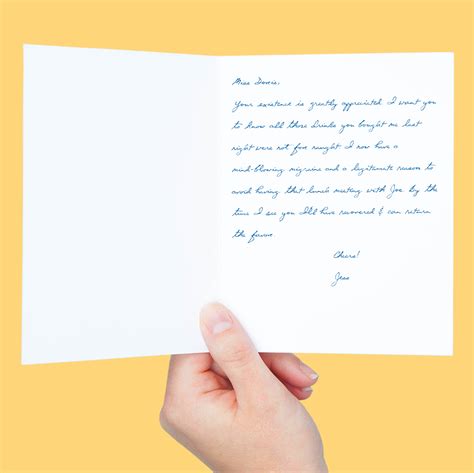 Miss Dovie,
Your existence is greatly appreciated. I want you
to know all those Drinks you bought me last
night were not fore naught. I now have a
mind-blowing migraine and a legitimate reason to
avoid having that lunch meeting with Joe. by the
time I see you I'll have recovered & can return
the favour.
Cheers!
Jess